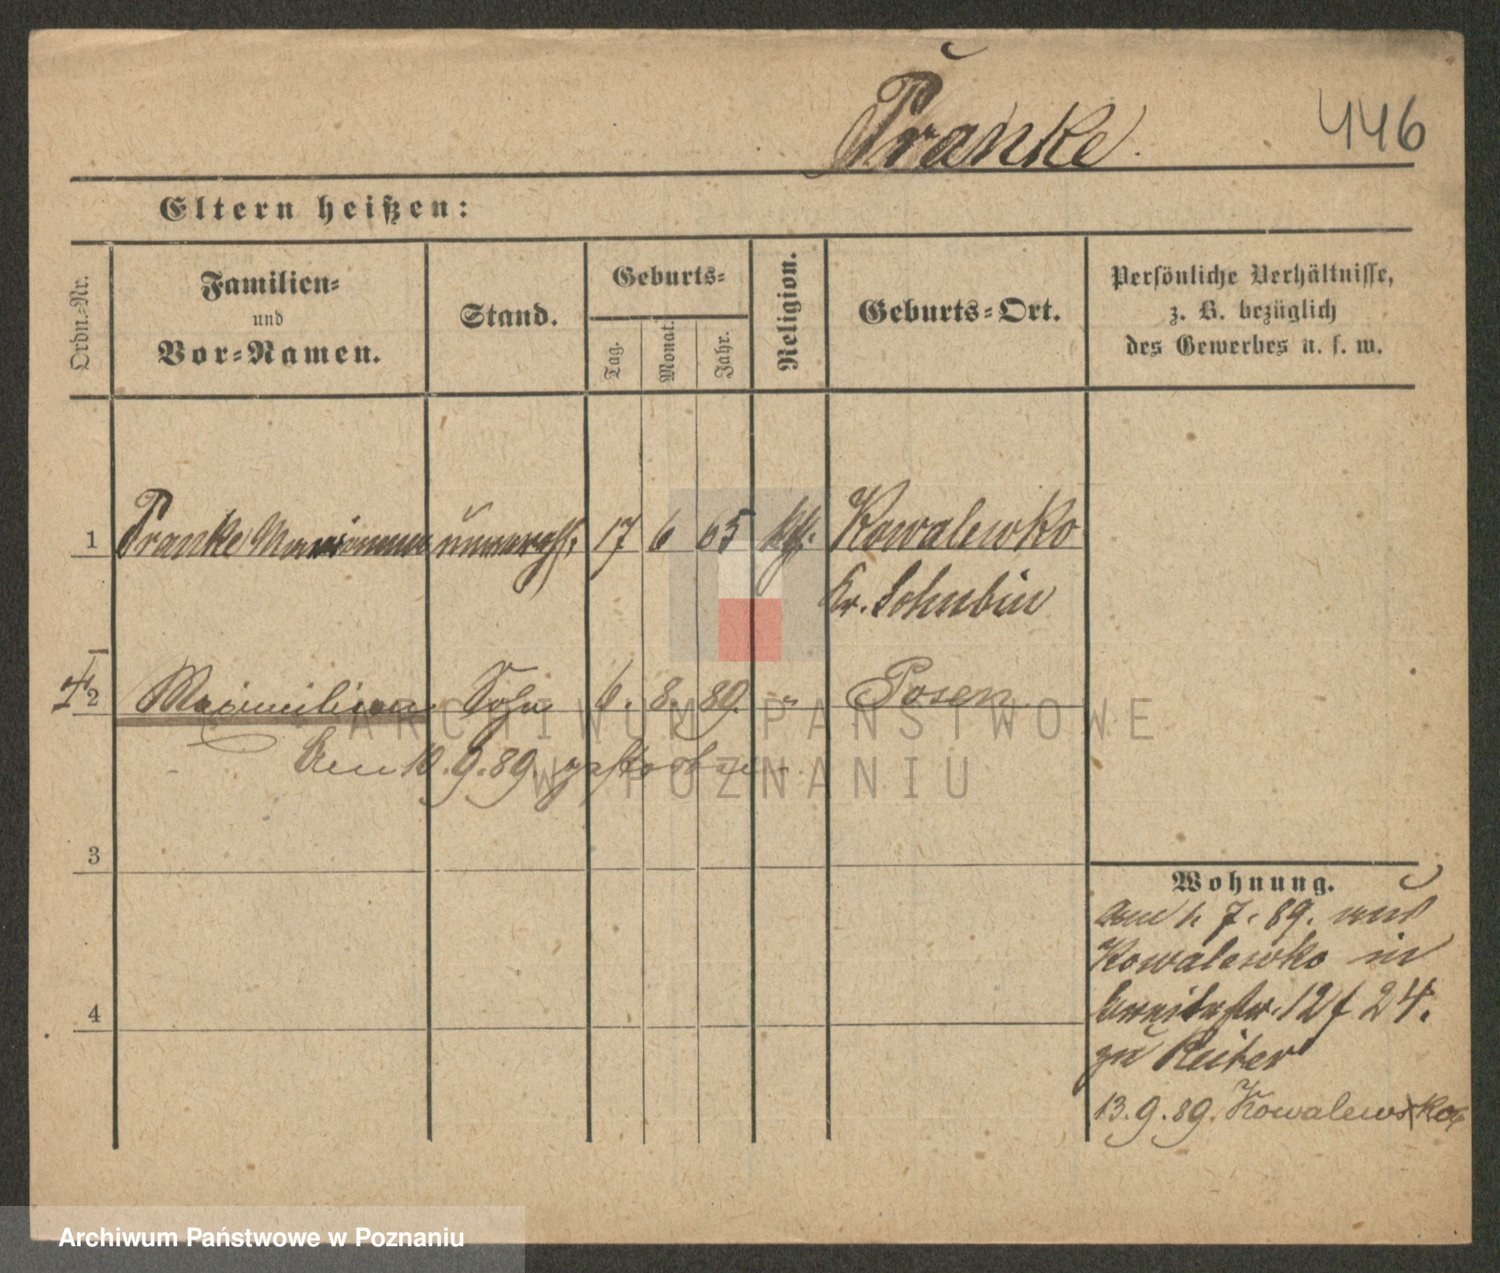 Pranke
446
Eltern heißen:
Ordn.-Nr.
Familien-
und
Vor-Namen.
Stand.
Geburts-
Tag.
Monat.
Jahr.
Religion.
Geburts-Ort.
Persönliche Verhältnisse,
z. B. bezüglich
des Gewerbes u. s. w.
1 Pranke unverh. 17 6 65 kth. Kowalewko
Kr. Schubin
2 Maximilian Sohn 6. 8. 89. " Posen
Am 10.9.89. gestorben
3
4
Wohnung.
am 1. 7. 89. aus
Kowalewko in
12 24.
zu Reiter
13.9.89. Kowalewsko
ARCHIWUM PAŃSTWOWE
W POZNANIU
Archiwum Państwowe w Poznaniu